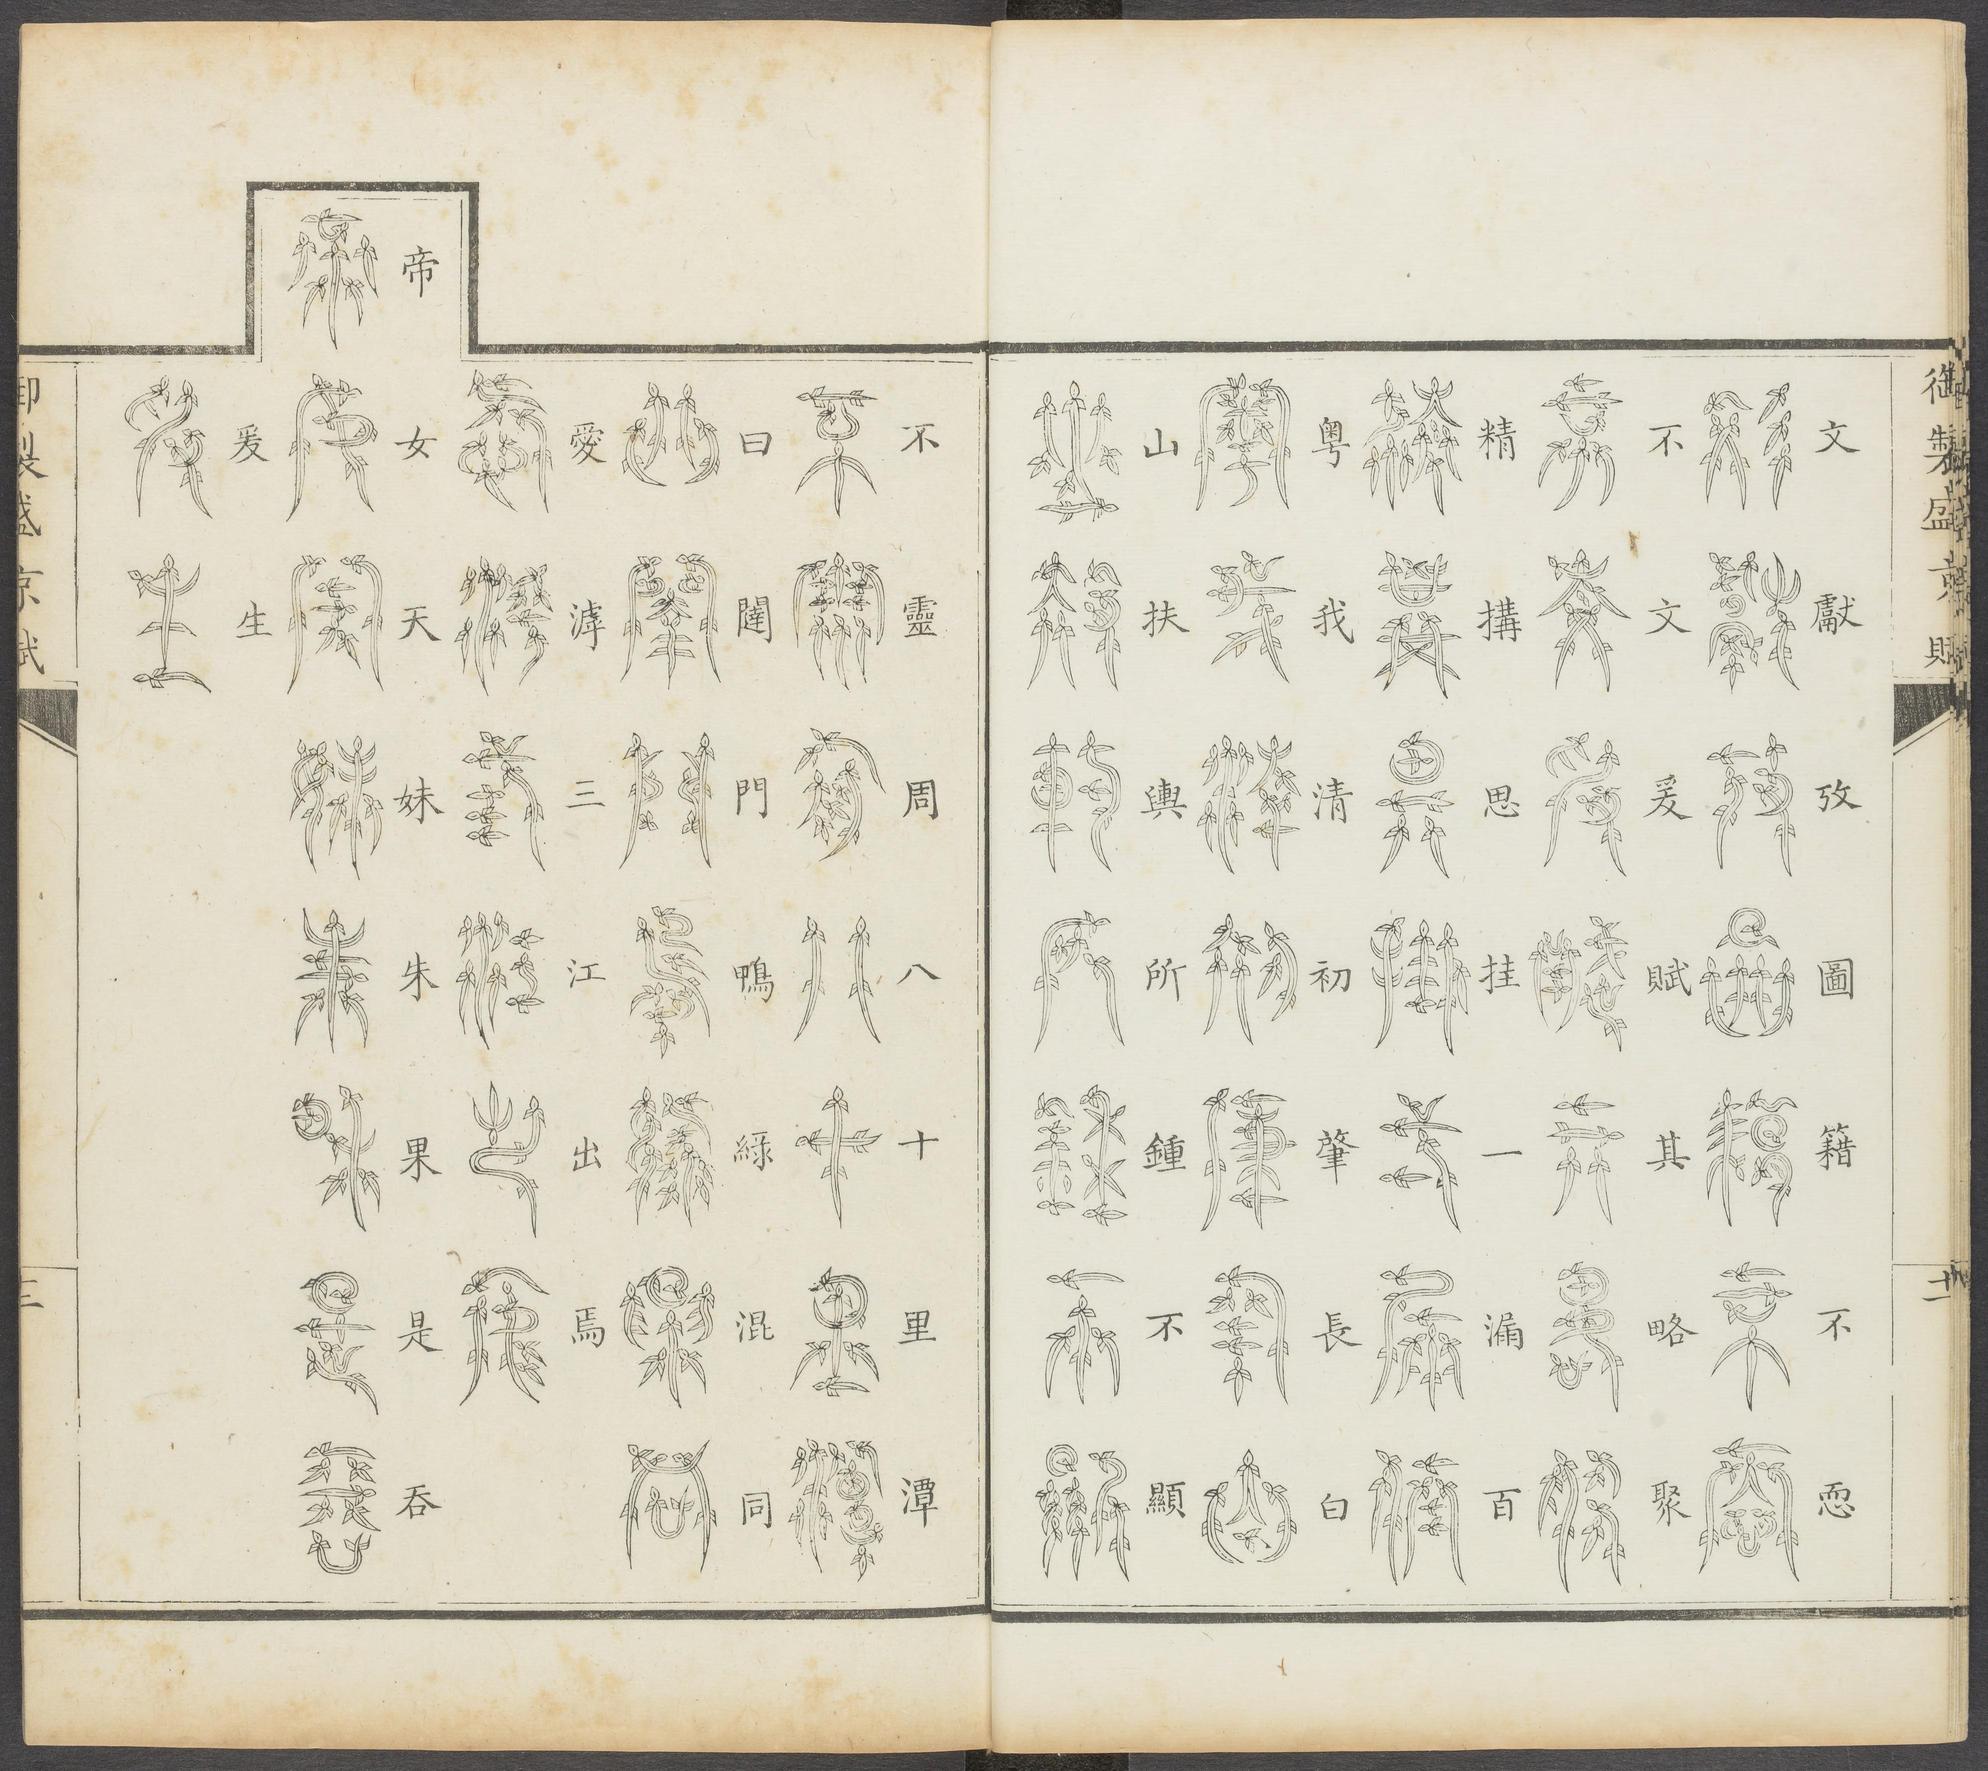 御製盛京賦
二
文獻攷圖籍不恧
不文爰賦其略聚
精搆思挂一漏百
粤我清初肇長白
山扶輿所鍾不顯
不靈周八十里潭
曰闥門鴨綠混同
愛滹三江出焉
帝女天妹朱果是吞
爰生
御製盛京賦
三